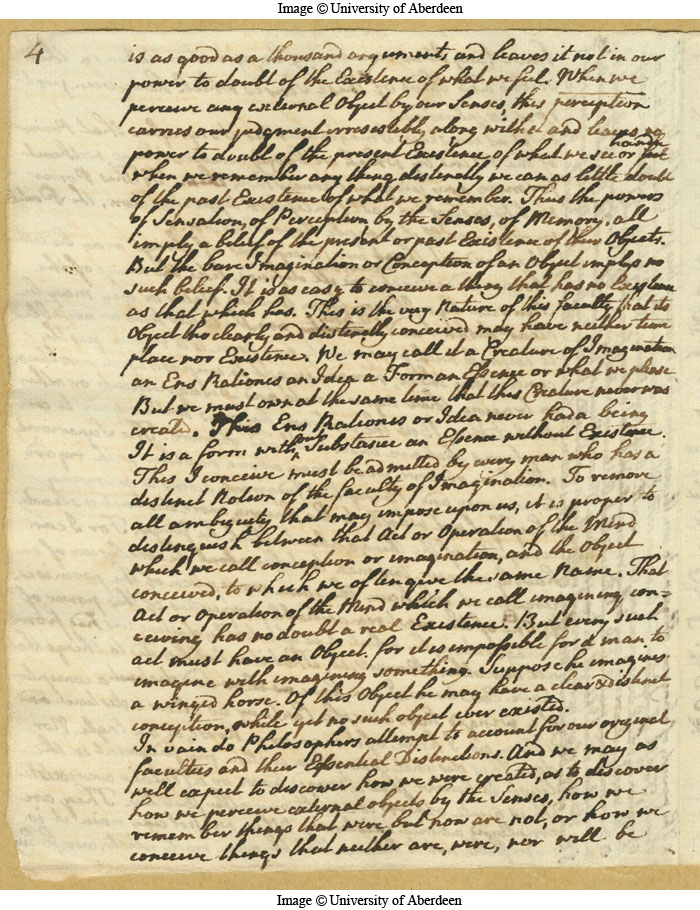 Image © University of Aberdeen
4
is as good as a thousand arguments and leaves it not in our
power to doubt of the Existence of what we feel. When we
perceive any external Object by our Senses, this perception
carries our judgment irresistibly along with it and leaves no
power to doubt of the present Existence of what we see or
when we remember any thing distinctly we can as little doubt
of the past Existence of what we remember. Thus the powers
of Sensation, of Perception by the Senses, of Memory, all
imply a belief of the present or past Existence of their Objects.
But the bare Imagination or Conception of an Object implys no
such belief. It is as easy to conceive a thing that has no Existence
as that which has. This is the very Nature of this faculty that its
Object tho clearly and distinctly conceived may have neither time
place nor Existence. We may call it a Creature of Imagination
an Ens Rationis an Idea a Form an Essence or what we please
But we must own at the same time that this Creature never was
created. This Ens Rationis or Idea never had a being
It is a form without Substance an Essence without Existence.
This I conceive must be admitted by every man who has a
distinct Notion of the faculty of Imagination. To remove
all ambiguity that may impose upon us, it is proper to
distinguish between that Act or Operation of the Mind
which we call conception or imagination, and the Object
conceived, to which we often give the same Name. That
Act or Operation of the Mind which we call imagining con=
ceiving has no doubt a real Existence. But every such
act must have an Object. for it is impossible for a man to
imagine with imagining something. Suppose he imagines
a winged horse. Of this Object he may have a clear & distinct
conception, while yet no such object ever existed.
In vain do Philosophers attempt to account for our original
faculties and their Essential Distinctions. And we may as
well expect to discover how we were created, as to discover
how we perceive external objects by the Senses, how we
remember things that were but now are not, or how we
conceive things that neither are, were, nor will be
Image © University of Aberdeen